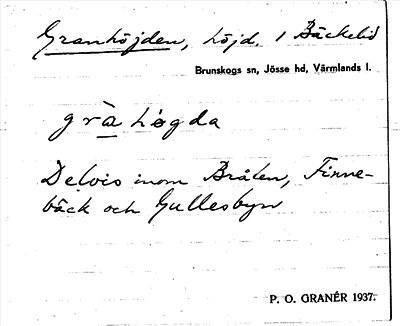 Granhöjden, höjd. 1 Bäckelid
Brunskogs sn, Jösse hd, Värmlands l.
gràhøgda
Delvis inom Brålen, Finne-
bäck och Gullesbyn
P. O. GRANÉR 1937.